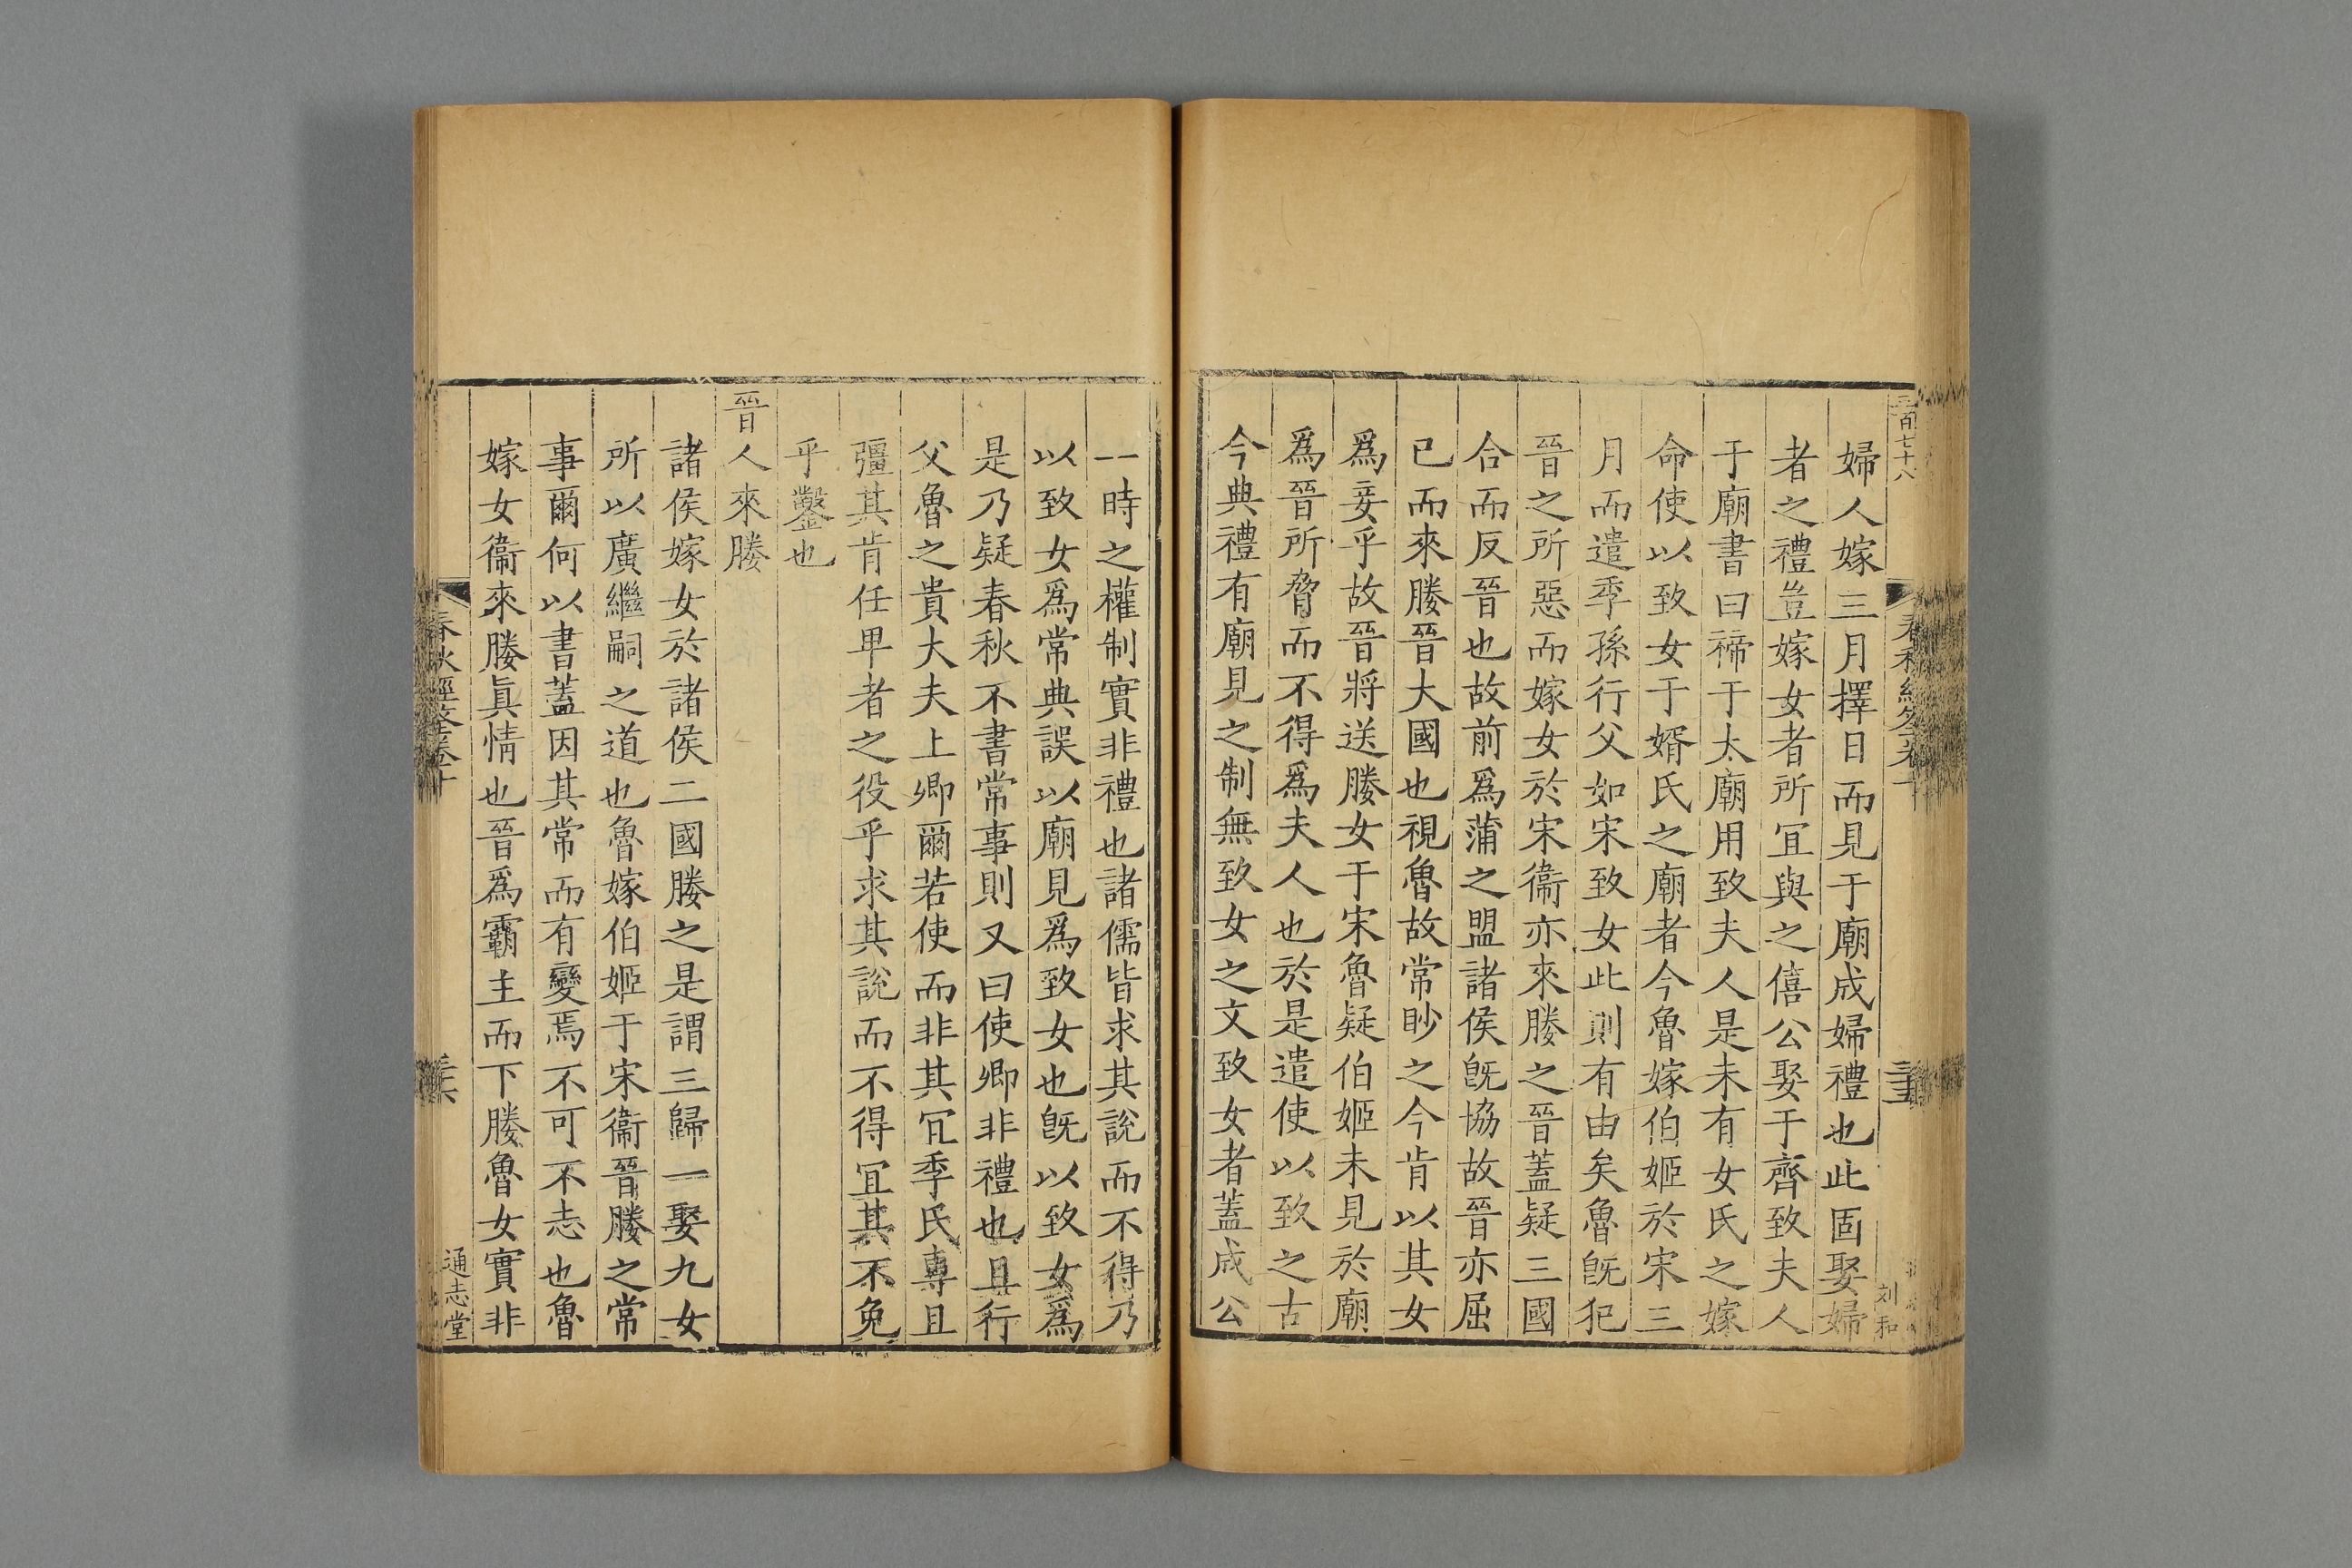 三百七十八
婦人嫁三月擇日而見于廟成婦禮也此固娶婦
者之禮豈嫁女者所冝與之僖公娶于齊致夫人
于廟書曰禘于太廟用致夫人是未有女氏之嫁
命使以致女于婿氏之廟者今魯嫁伯姬於宋三
月而遣季孫行父如宋致女此則有由矣魯旣犯
晉之所惡而嫁女於宋衞亦來媵之晉蓋疑三國
合而反晉也故前爲蒲之盟諸侯旣協故晉亦屈
已而來媵晉大國也視魯故常眇之今肯以其女
爲妾乎故晉將送媵女于宋魯疑伯姬未見於廟
爲晉所脅而不得爲夫人也於是遣使以致之古
今典禮有廟見之制無致女之文致女者蓋成公
刘和
一時之權制實非禮也諸儒皆求其說而不得乃
以致女爲常典誤以廟見爲致女也旣以致女爲
是乃疑春秋不書常事則又曰使卿非禮也且行
父魯之貴大夫上卿爾若使而非其冝季氏專且
彊其肯任卑者之役乎求其說而不得冝其不免
乎鑿也
晉人來媵
諸侯嫁女於諸侯二國媵之是謂三歸一娶九女
所以廣繼嗣之道也魯嫁伯姬于宋衞晉媵之常
事爾何以書蓋因其常而有變焉不可不志也魯
嫁女衞來媵眞情也晉爲霸主而下媵魯女實非
春秋經筌卷十
通志堂